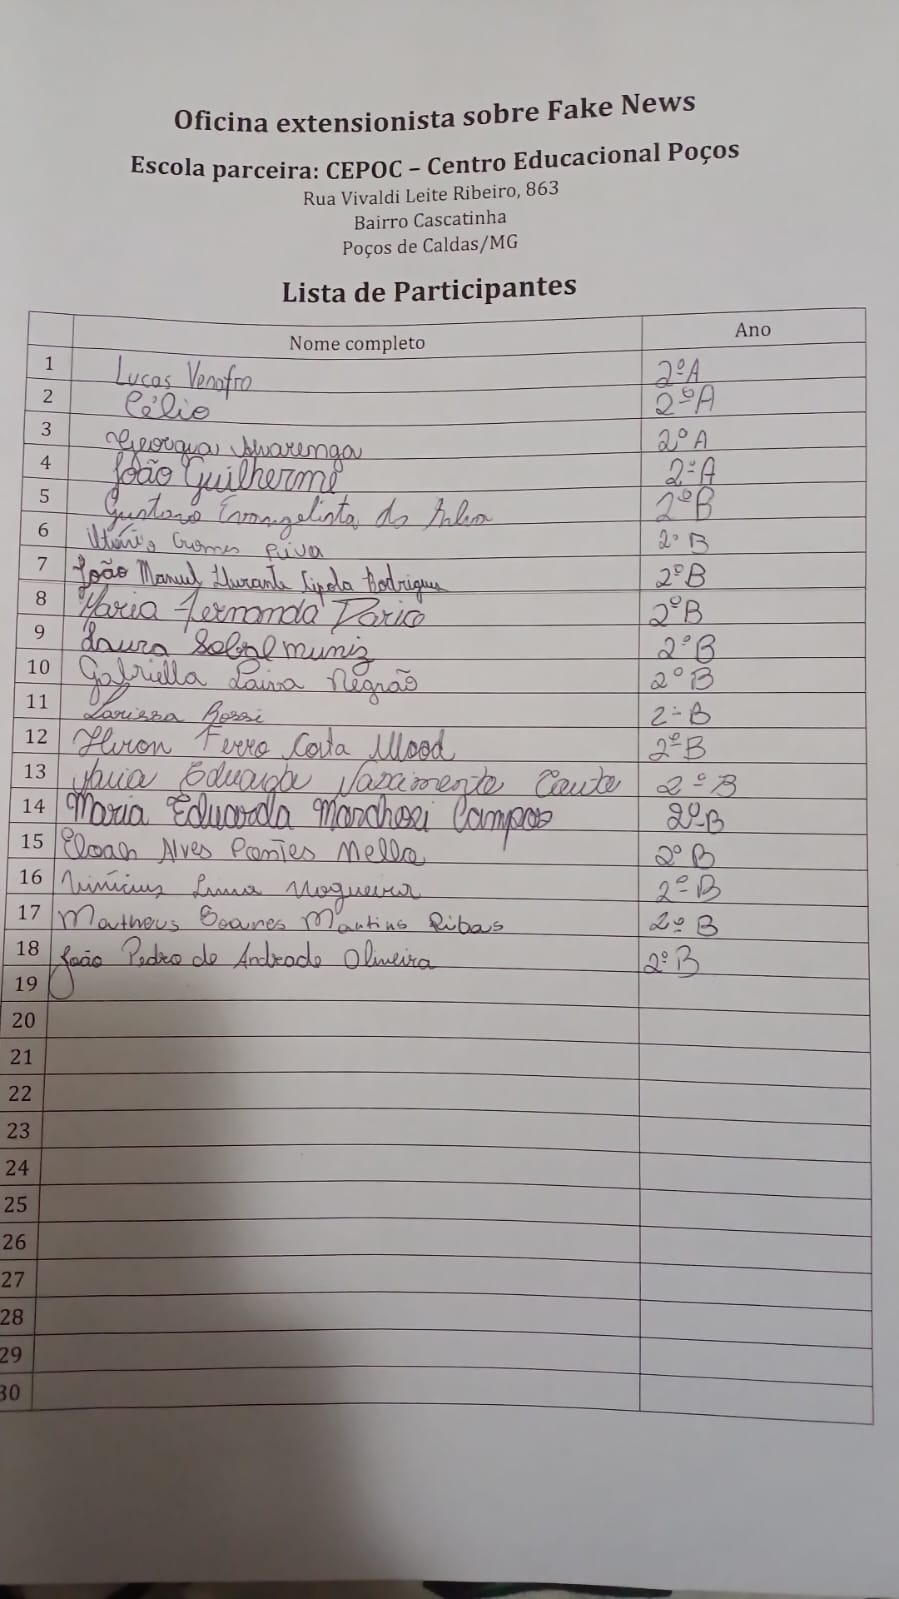 Oficina extensionista sobre Fake News
Escola parceira: CEPOC – Centro Educacional Poços
Rua Vivaldi Leite Ribeiro, 863
Bairro Cascatinha
Poços de Caldas/MG
Lista de Participantes
Nome completo Ano
1 Lucas Venafro 2ºA
2 Célio 2ºA
3 Georgia Alvarenga 2ºA
4 João Guilherme 2ºA
5 Gustavo Evangelista da Silva 2ºB
6 Gomes 2ºB
7 João Manuel Rodrigues 2ºB
8 Maria Fernanda 2ºB
9 Laura Sobral muniz 2ºB
10 Gabriella Paiva Negrão 2ºB
11 Larissa Rossi 2ºB
12 Ferro Costa 2ºB
13 Maria Eduarda Nascimento 2ºB
14 Maria Eduarda Campos 2ºB
15 Eloah Alves Pontes Mella 2ºB
16 Vinícius Lima Nogueira 2ºB
17 Matheus Soares Martins Ribas 2ºB
18 João Pedro de Andrade Oliveira 2ºB
19
20
21
22
23
24
25
26
27
28
29
30